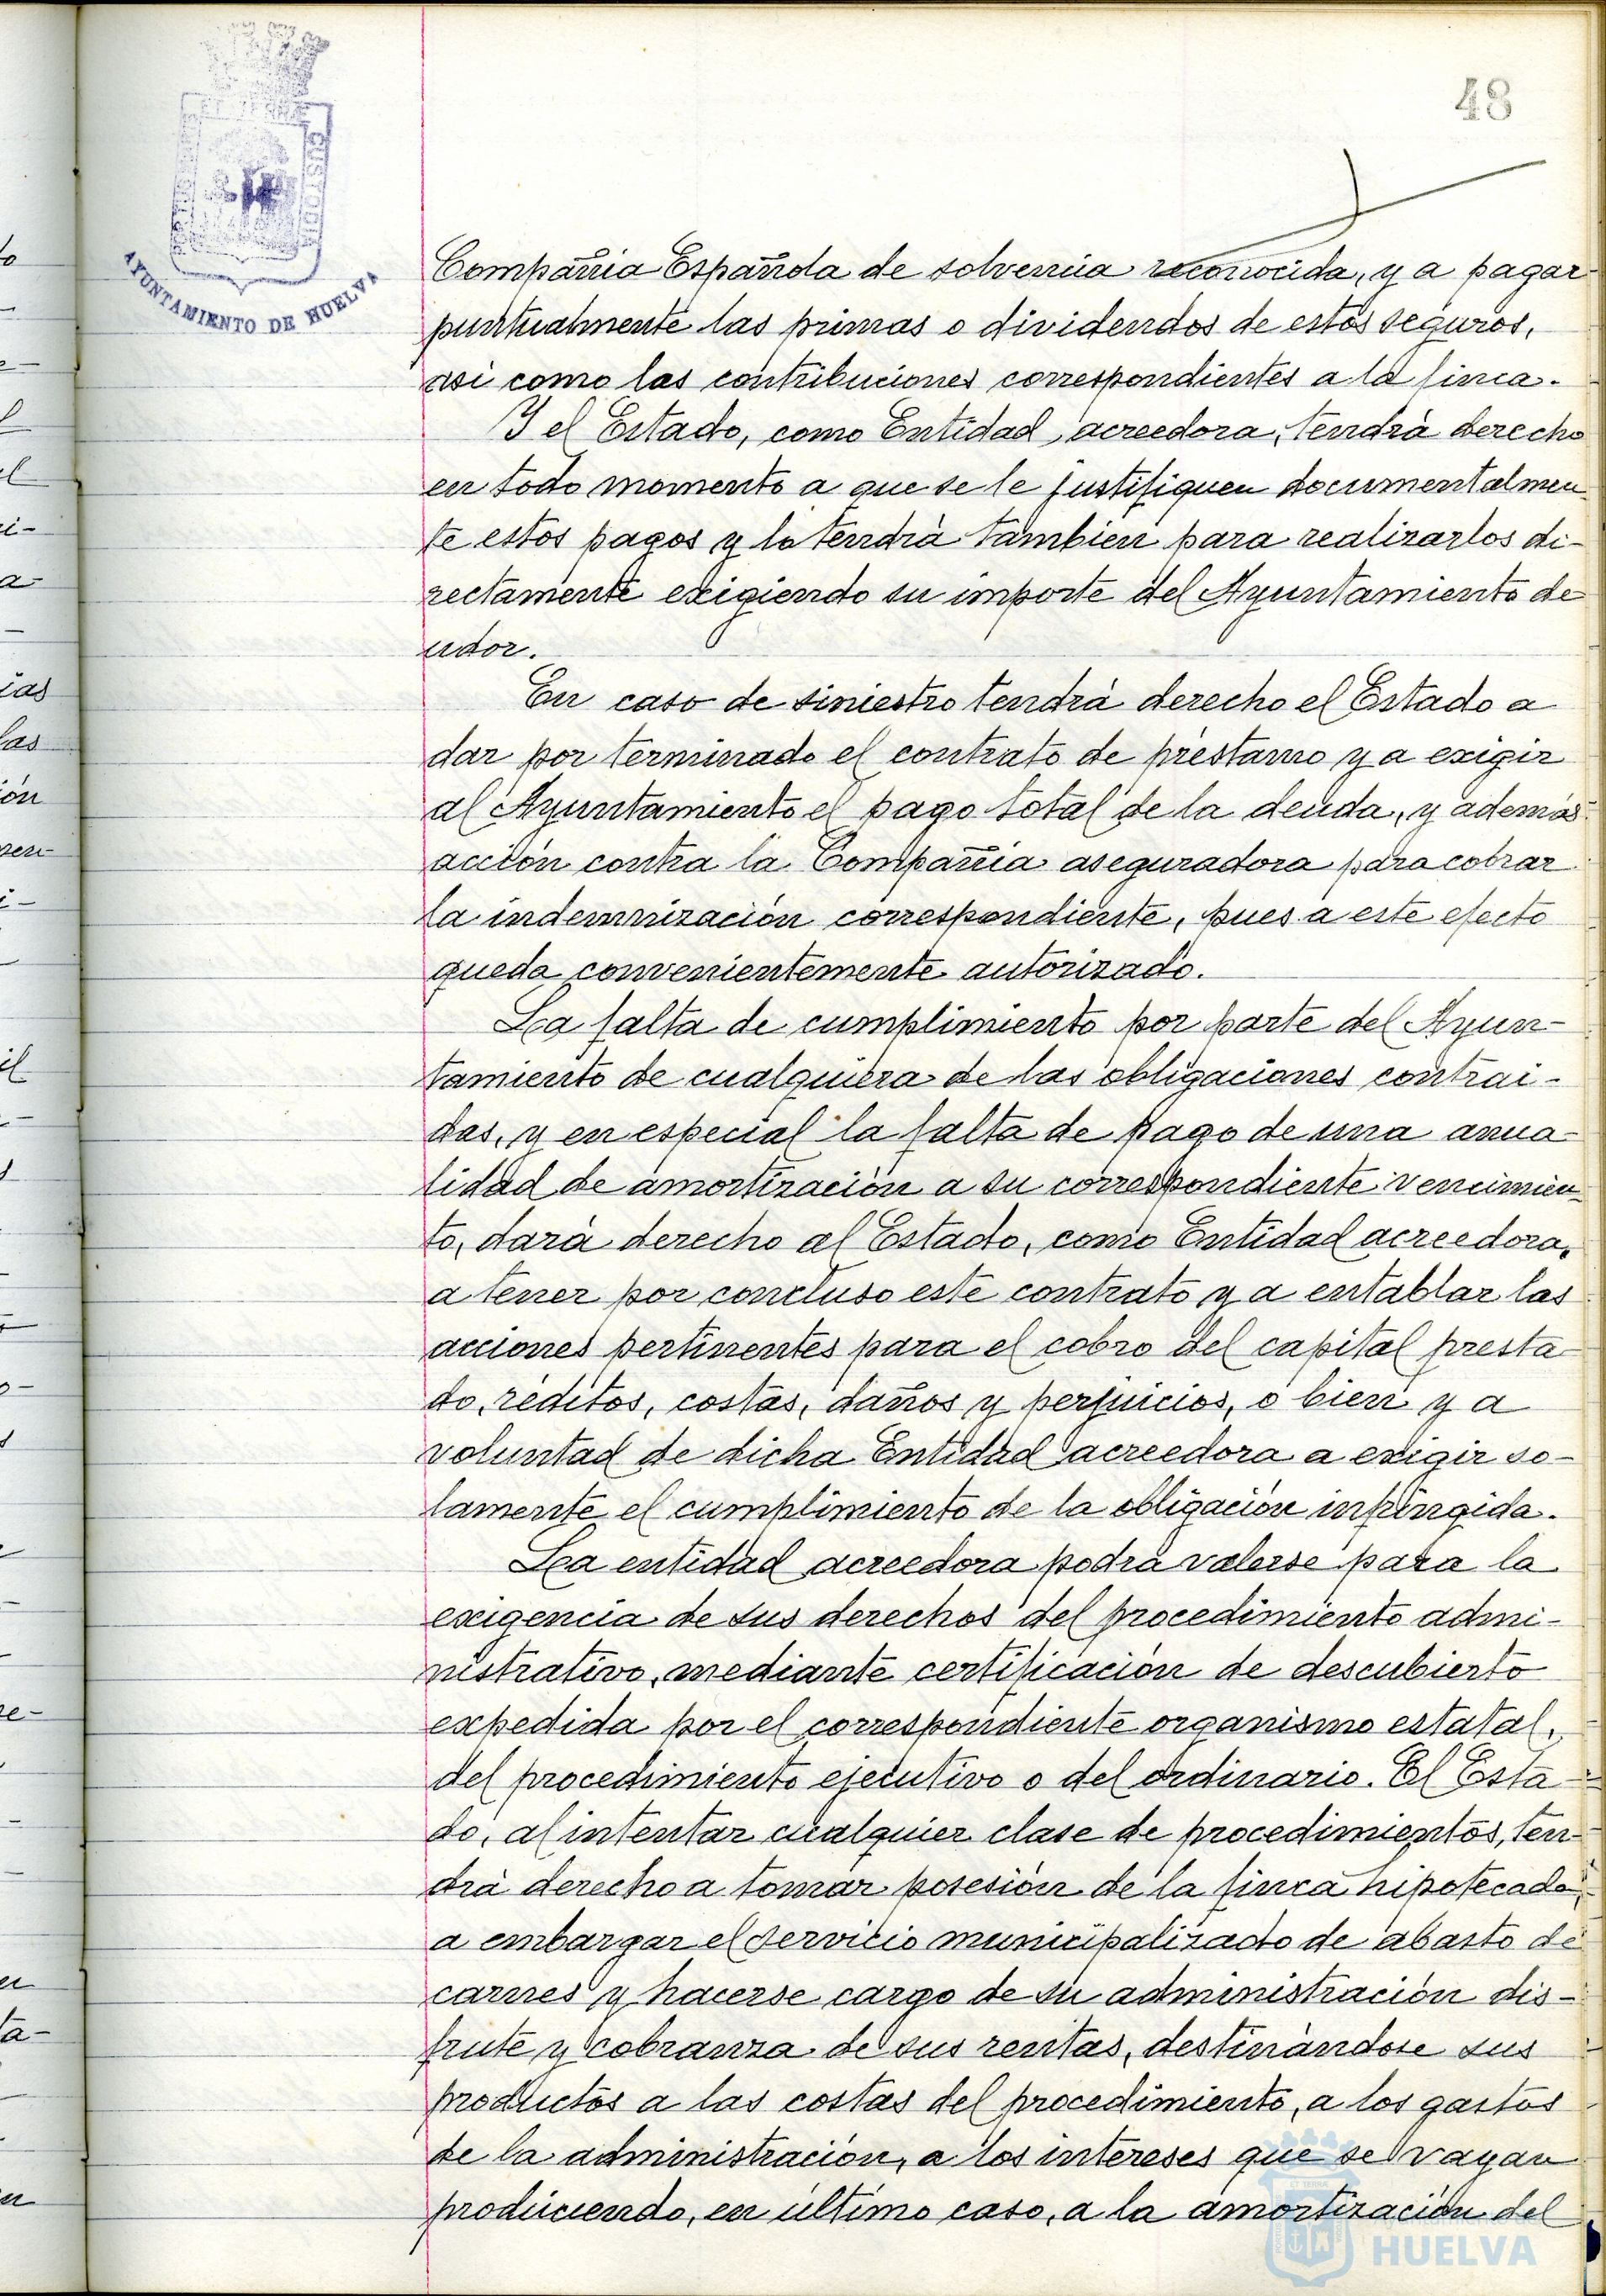 48
AYUNTAMIENTO DE HUELVA
Compañia Española de solvencia reconocida, y a pagar
puntualmente las primas o dividendos de estos seguros,
asi como las contribuciones correspondientes a la finca.
Y el Estado, como Entidad acreedora, tendrà derecho
en todo momento a que se le justifiquen documentalmen-
te estos pagos y lo tendrà tambien para realizarlos di-
rectamente exigiendo su importe del Ayuntamiento de
udor.
En caso de siniestro tendrà derecho el Estado a
dar por terminado el contrato de prestamo y a exigir
al Ayuntamiento el pago total de la deuda, y ademàs
acciòn contra la Compañia aseguradora para cobrar
la indemnizaciòn correspondiente, pues a este efecto
queda convenientemente autorizado.
La falta de cumplimiento por parte del Ayun-
tamiento de cualquiera de las obligaciones contrai-
das, y en especial la falta de pago de una anua-
lidad de amortizaciòn a su correspondiente vencimien-
to, darà derecho al Estado, como Entidad acreedora,
a tener por concluso este contrato y a entablar las
acciones pertinentes para el cobro del capital presta-
do, rèditos, costas, daños y perjuicios, o bien y a
voluntad de dicha Entidad acreedora a exigir so-
lamente el cumplimiento de la obligaciòn infringida.
La entidad acreedora podrà valerse para la
exigencia de sus derechos del procedimiento admi-
nistrativo, mediante certificaciòn de descubierto
expedida por el correspondiente organismo estatal,
del procedimiento ejecutivo o del ordinario. El Esta-
do, al intentar cualquier clase de procedimientos, ten-
drà derecho a tomar posesiòn de la finca hipotecada,
a embargar el servicio municipalizado de abasto de
carnes y hacerse cargo de su administraciòn dis-
frute y cobranza de sus rentas, destinàndose sus
productos a las costas del procedimiento, a los gastos
de la administraciòn, a los intereses que se vayan
produciendo, en ùltimo caso, a la amortizaciòn del
HUELVA